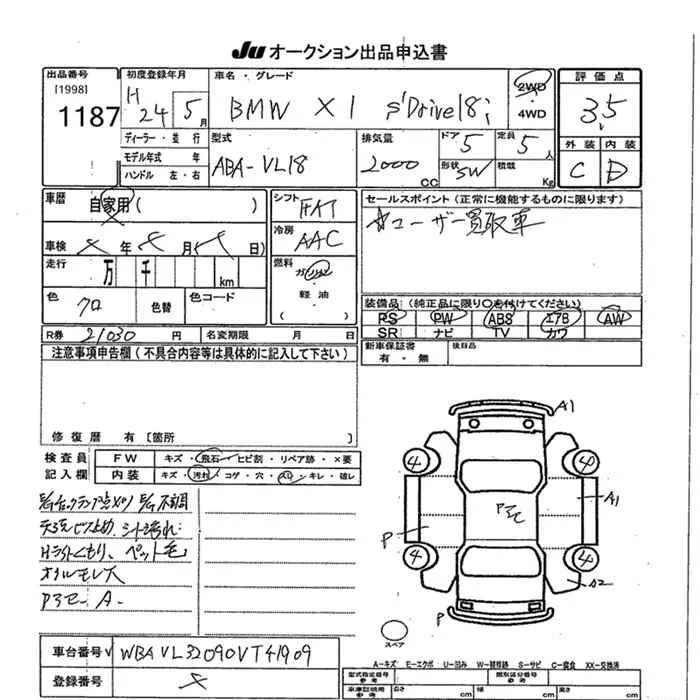 JU オークション出品申込書
出品番号 初度登録年月 車名・グレード 評価点
[1998] H 24 5月 BMW X1 s'Drive18i 2WD 3.5
1187 4WD
ディーラー・並行 型式 排気量 ドア 定員 外装 内装
モデル年式 年 ABA-VL18 2000 CC 5 5人 C D
ハンドル 左・右 形状 SW 積載 Kg
車歴 自家用 ( ) シフト FAT セールスポイント(正常に機能するものに限ります)
車検 年 月( 日) 冷房 AAC ☆ユーザー買取車
走行 万 千 km 燃料 ガソリン
軽油
( )
色 クロ 色替 色コード 装備品(純正品に限り○を付けてください)
PS PW ABS エアB AW
R券 21030 円 名変期限 月 日 SR ナビ TV カワ
注意事項申告欄(不具合内容等は具体的に記入して下さい) 新車保証書 後日品
有・無
修復歴 有 〔箇所 〕
検査員 FW キズ・飛石・ヒビ割・リペア跡・×要
記入欄 内装 キズ・汚れ・コゲ・穴・スレ・キレ・破レ
天張ビス止め、シート汚れ
Hライトくもり、ペット毛
オイルモレ大
Pスモー A-
A1
4 4
A1
P Pスモ
4 4
A2
P
スペア
車台番号 WBAVL32090VT41909
登録番号
A-キズ E-エクボ U-凹み W-補修跡 S-サビ C-腐食 XX-交換済
型式指定番号 参考 類別区分番号 参考
車庫証明用 参考 長さ cm 幅 cm 高さ cm